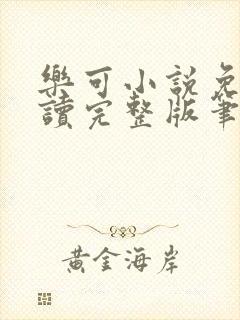 樂可小説免
讀完整版筆
黃金海岸